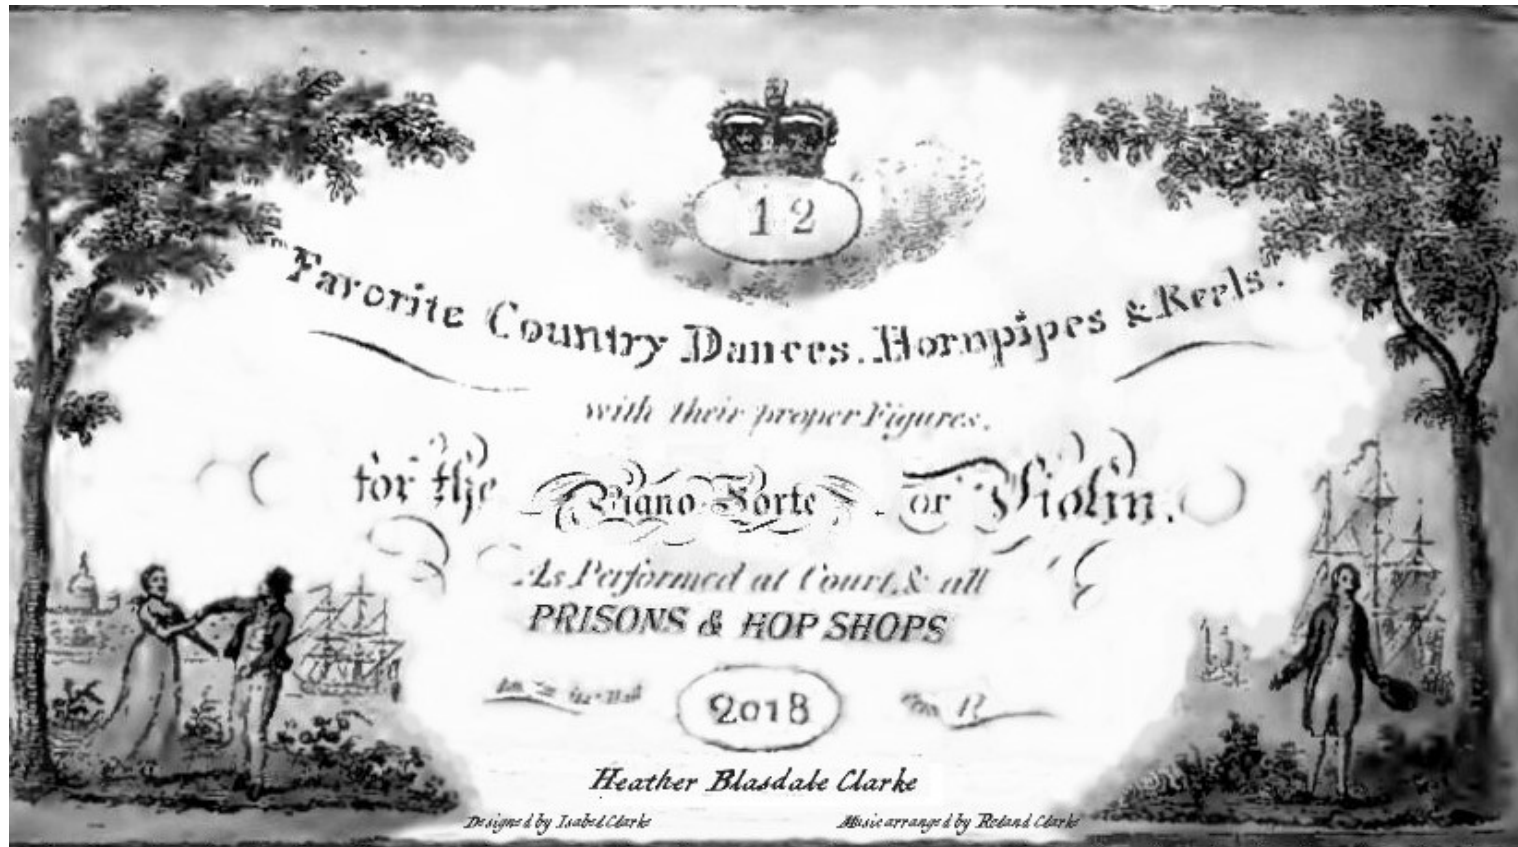 12
Favorite Country Dances, Hornpipes & Reels.
with their proper Figures,
for the Piano Forte or Violin.
As Performed at Court, & all
PRISONS & HOP SHOPS
2018
Heather Blasdale Clarke
Designed by Isabel Clarke
Music arranged by Roland Clarke